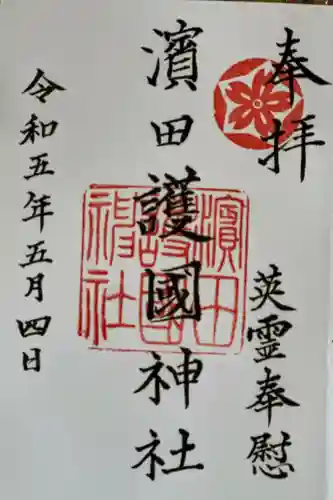 奉拝
英霊奉慰
濱田護國神社
令和五年五月四日
濱田
護國
神社